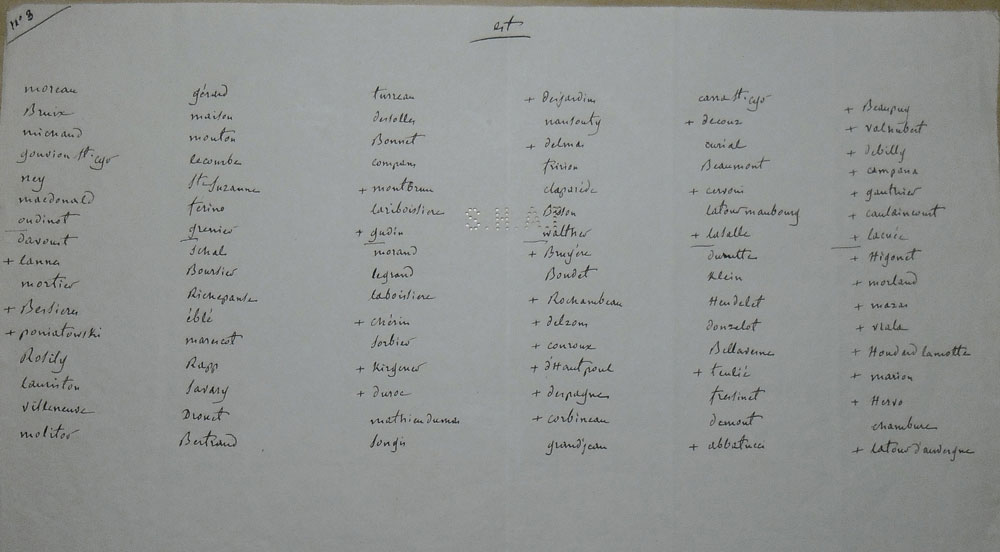 n° 8
est
moreau
Bruix
michaud
gouvion St. cyr
ney
macdonald
oudinot
davoust
+ lannes
mortier
+ Bessieres
+ poniatowski
Rosily
lauriston
villeneuve
molitor
gérard
maison
mouton
lecourbe
Ste Suzanne
ferino
grenier
Schal
Boursier
Richepanse
éblé
marescot
Rapp
Savary
Drouet
Bertrand
turreau
desolles
Bonnet
compans
+ montbrun
lariboissiere
+ gudin
morand
legrand
laboissiere
+ chérin
Sorbier
+ Kirgener
+ duroc
mathieu dumas
Songis
+ desjardins
nansouty
+ delmas
fririon
claparède
Bisson
walther
+ Bruyère
Boudet
+ Rochambeau
+ delzons
+ couroux
+ d'Hautpoul
+ despagnes
+ corbineau
grandjean
carra St. cyr
+ decouz
curial
Beaumont
+ cervoni
latour maubourg
+ lasalle
durutte
Klein
Heudelet
donzelot
Bellavenne
+ teulié
freisinet
demont
+ abbatucci
+ Beaupuy
+ valhubert
+ debilly
+ campana
+ gauthier
+ caulaincourt
+ lacuée
+ Higonet
+ morland
+ mazas
+ viala
+ Honderd lamotte
+ marion
+ Hervo
chambure
+ latour d'auvergne
S.H.A.T